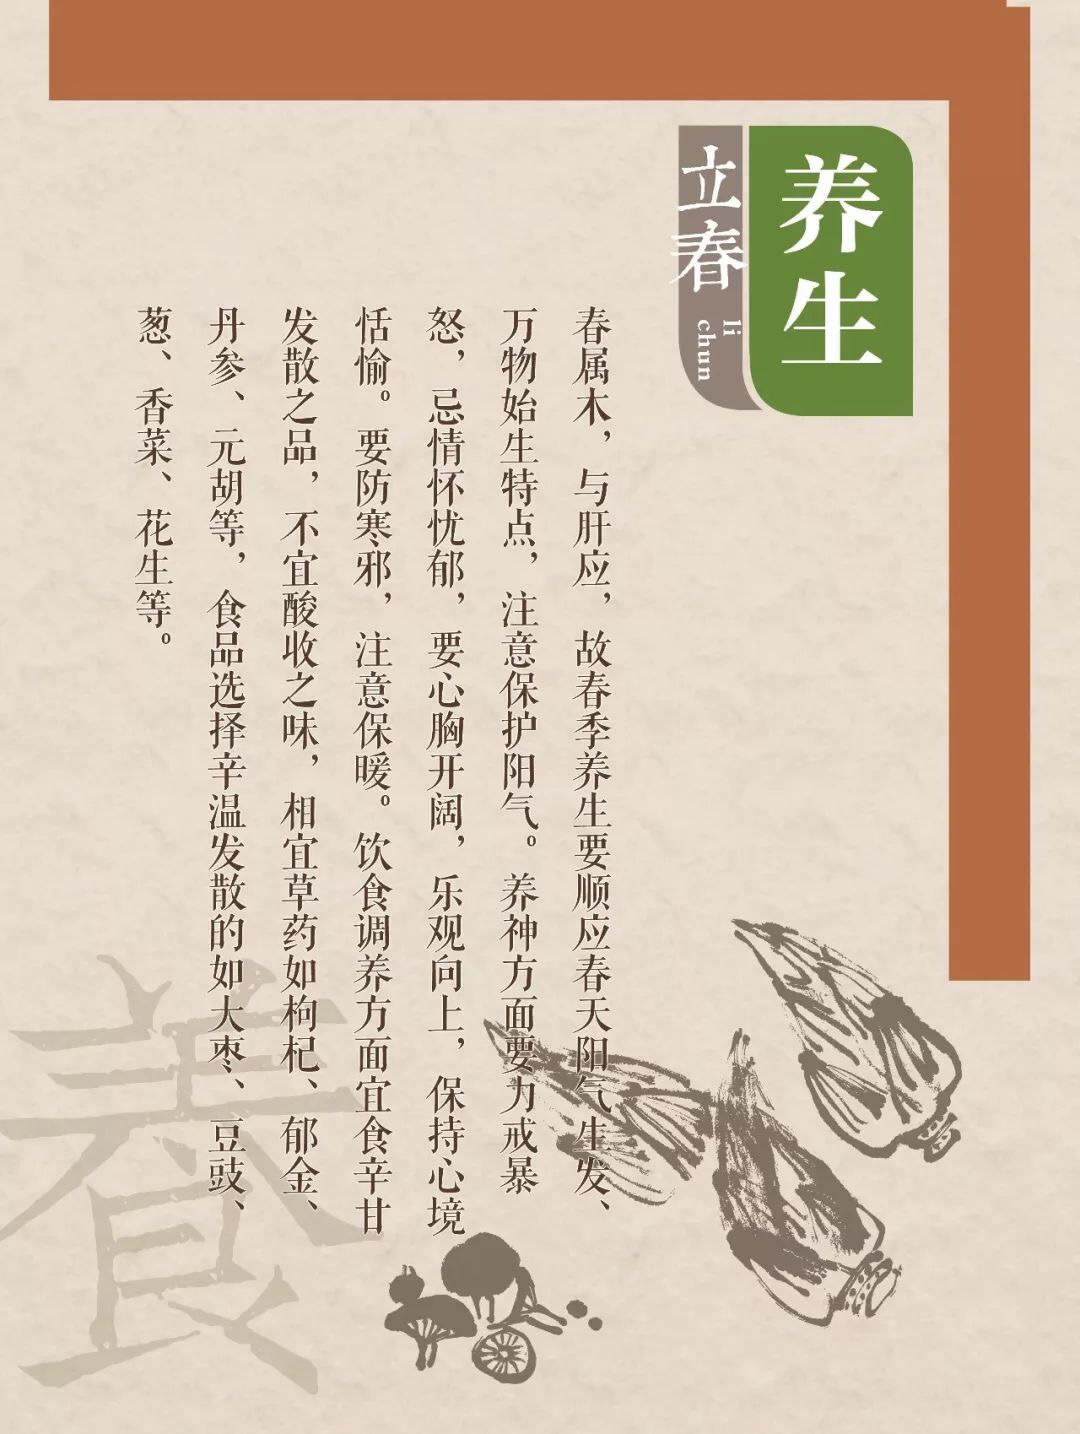 养生
立春
li chun
春属木，与肝应，故春季养生要顺应春天阳气生发、
万物始生特点，注意保护阳气。养神方面要力戒暴
怒，忌情怀忧郁，要心胸开阔，乐观向上，保持心境
恬愉。要防寒邪，注意保暖。饮食调养方面宜食辛甘
发散之品，不宜酸收之味，相宜草药如枸杞、郁金、
丹参、元胡等，食品选择辛温发散的如大枣、豆豉、
葱、香菜、花生等。
養